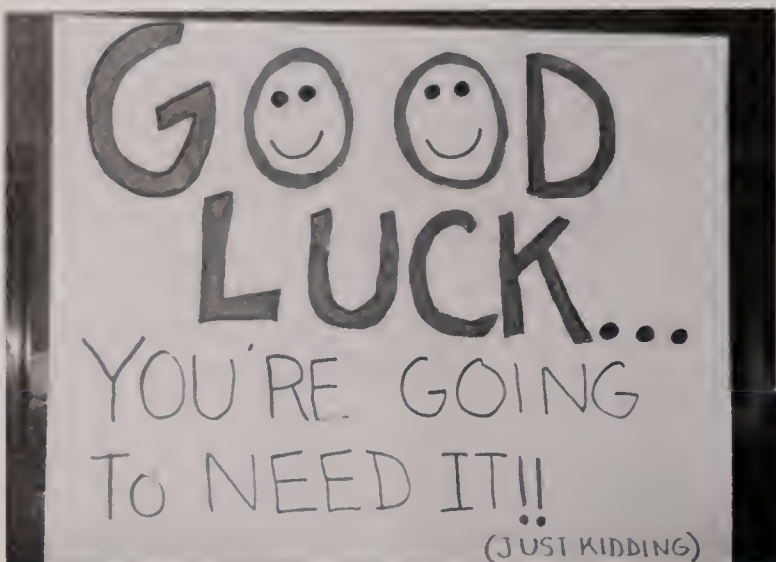 GOOD
LUCK...
YOU'RE GOING
TO NEED IT!!
(JUST KIDDING)